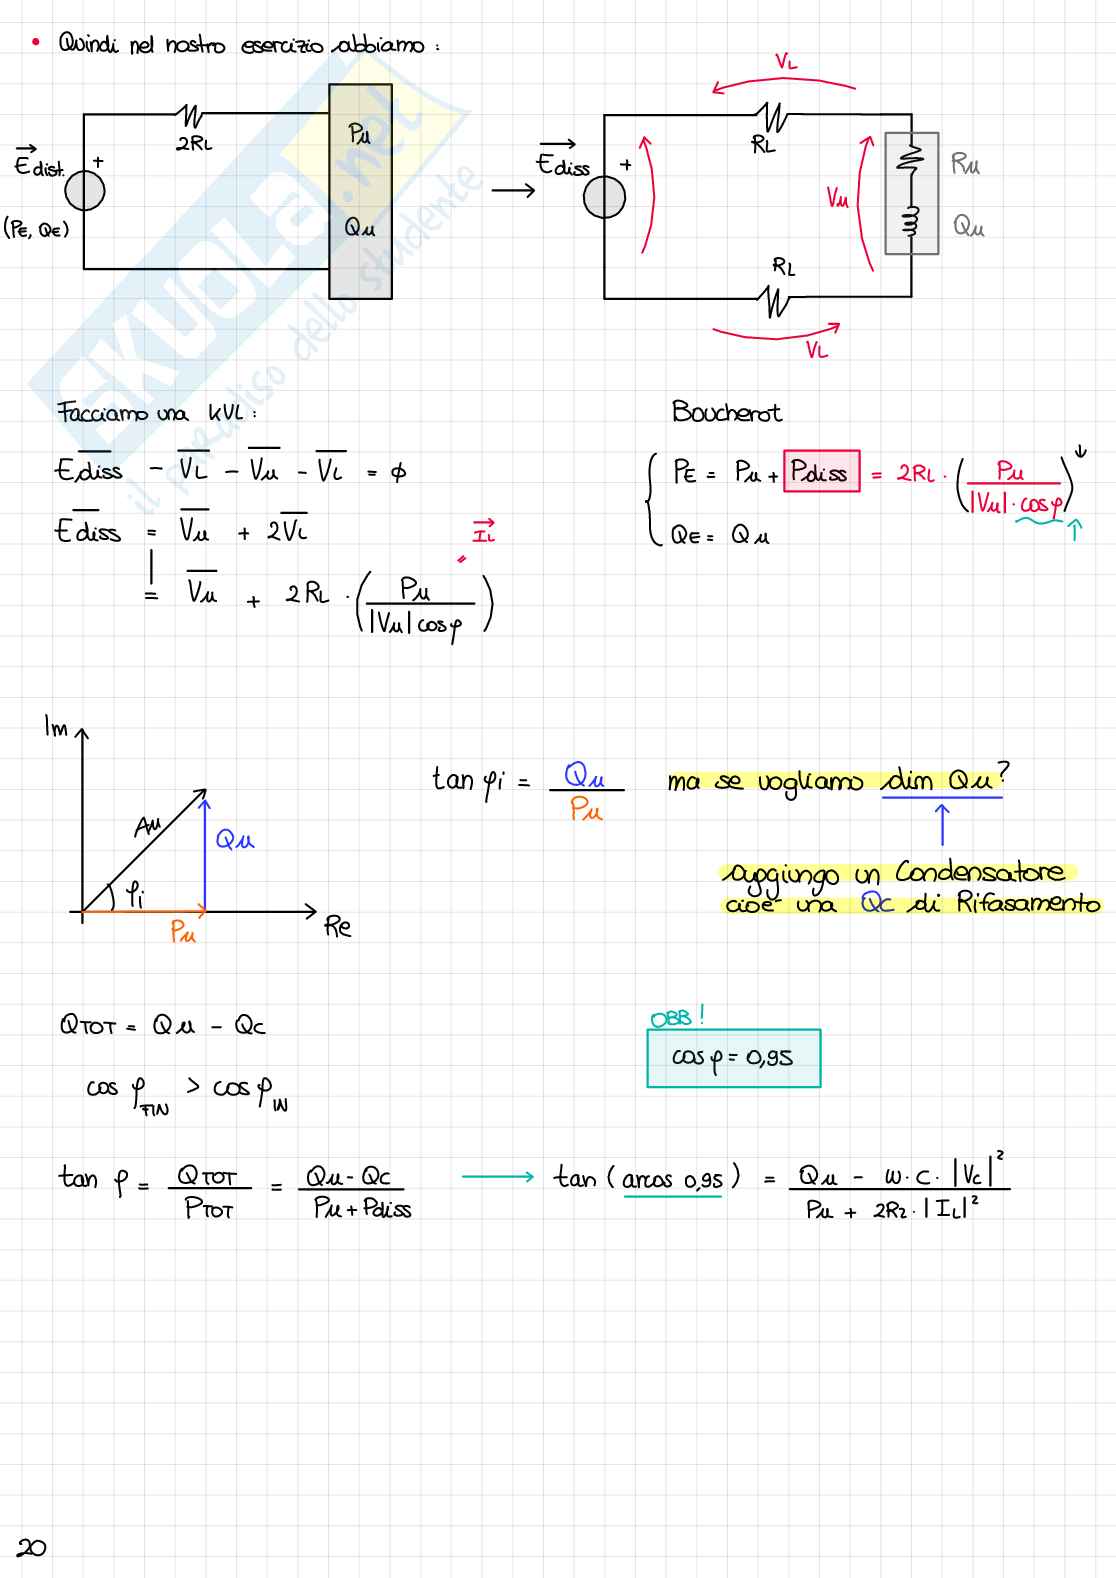 • Quindi nel nostro esercizio abbiamo :
2RL
Edist.
+
(PE, QE)
Pu
Qu
Ediss
+
VL
RL
Vu
Ru
Qu
RL
VL
SKUOLA.net
il paradiso dello studente
Facciamo una KVL :
Ediss - VL - Vu - VL = ϕ
Ediss = Vu + 2VL
IL
= Vu + 2RL · ( Pu / |Vu| cos φ )
Boucherot
PE = Pu + Pdiss = 2RL · ( Pu / |Vu| · cos φ )
QE = Qu
Im
Au
Qu
φi
Pu
Re
tan φi = Qu / Pu
ma se vogliamo dim Qu ?
aggiungo un Condensatore
cioè una Qc di Rifasamento
QTOT = Qu - Qc
cos φFIN > cos φIN
OBB !
cos φ = 0,95
tan φ = QTOT / PTOT = Qu - Qc / Pu + Pdiss
tan ( arcos 0,95 ) = Qu - w · C · |Vc|² / Pu + 2R2 · |IL|²
20